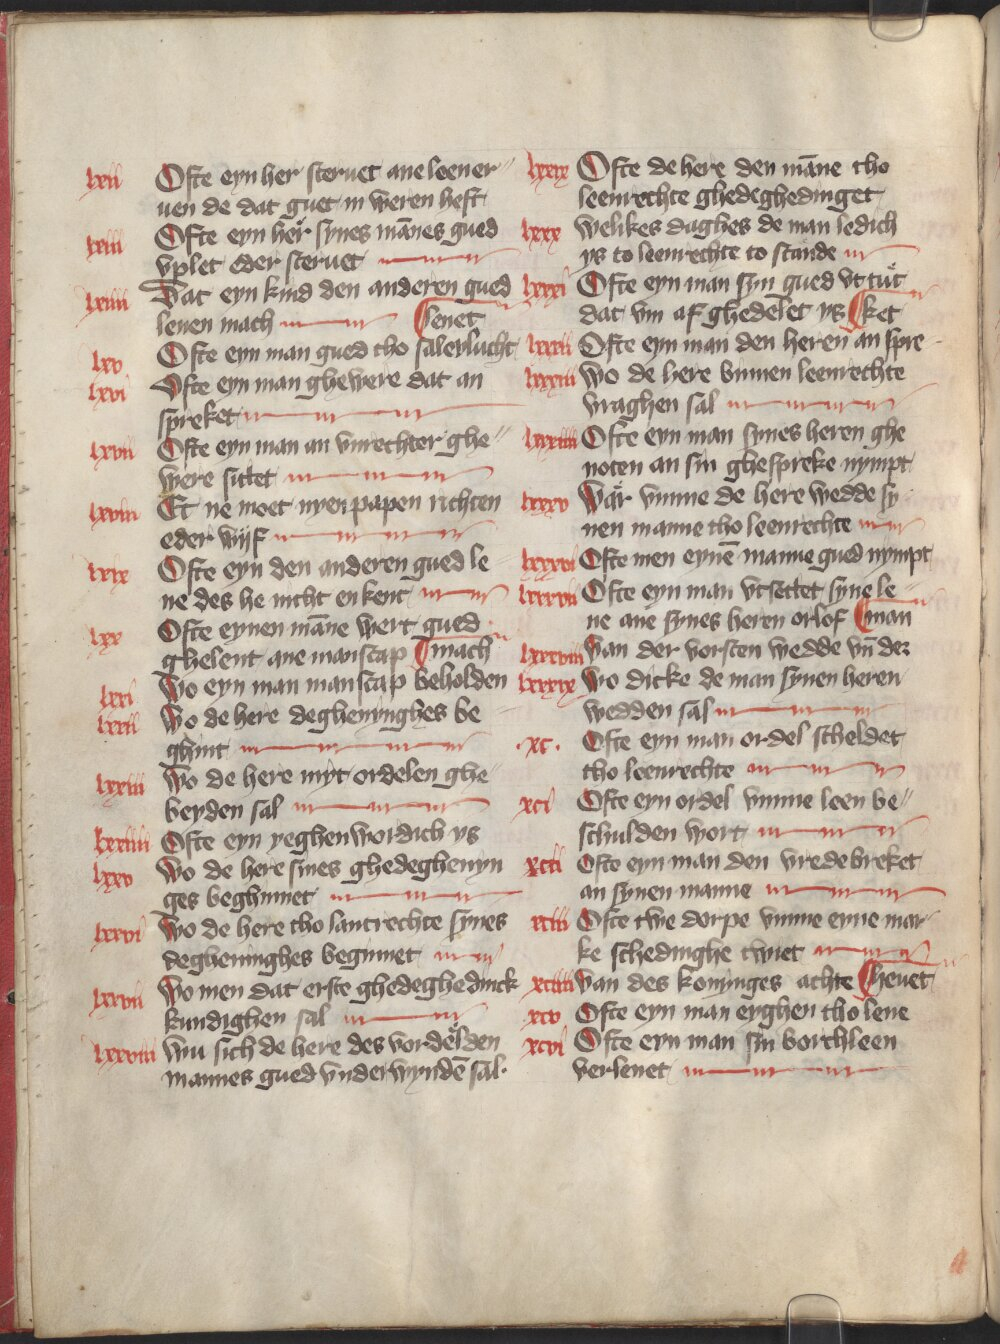 lxii Ofte eyn her steruet ane leener
uen de dat guet in weren heft
lxiii Ofte eyn her synes mānes gued
vplet eder steruet
lxiiii Dat eyn kind den anderen gued
lenen mach lenet
lxv Ofte eyn man gued tho salevlucht
lxvi Ofte eyn man ghewere dat an
spreket
lxvii Ofte eyn man an vnrechter ghe
were sittet
lxviii Et ne moet nyen papen richten
eder wijf
lxix Ofte eyn den anderen gued le
ne des he nicht en kent
lxx Ofte eynen māne wert gued
ghelent ane manscap mach
lxxi Wo eyn man manscap beholden
lxxii Wo de here degheninghes be
ghint
lxxiii Wo de here myt ordelen ghe
beyden sal
lxxiiii Ofte eyn yeghenwordich ys
lxxv Wo de here sines ghedeghenyn
ges beghinnet
lxxvi Wo de here tho lantrechte synes
degheninghes beginnet
lxxvii Wo men dat erste ghedeghedinck
kundighen sal
lxxviii Wu sich de here des vordelden
mannes gued vnderwyndē sal
lxxix Ofte de here den māne tho
leenrechte ghedeghedinget
lxxx Welikes daghes de man ledich
ys to leenrechte to stande
lxxxi Ofte eyn man syn gued vt tüt
dat vm af ghedelet ys ket
lxxxii Ofte eyn man den heren an spre
lxxxiii Wo de here bynnen leenrechte
vraghen sal
lxxxiiii Ofte eyn man synes heren ghe
noten an sin ghespreke nympt
lxxxv Wär vmme de here wedde sy
nen manne tho leenrechte
lxxxvi Ofte men eynē manne gued nympt
lxxxvii Ofte eyn man vtsettet syne le
ne ane synes heren orlof man
lxxxviii Van der vorsten wedde vn̄ der
lxxxix Wo dicke de man synen heren
wedden sal
xc Ofte eyn man ordel scheldet
tho leenrechte
xci Ofte eyn ordel vmme leen be
schulden wort
xcii Ofte eyn man den vrede breket
an synen manne
xciii Ofte twe dorpe vmme eyne mar
ke schedinghe twiet
xciiii Van des koninges achte heuet
xcv Ofte eyn man eyghen tho lene
xcvi Ofte eyn man sin borchleen
verlenet